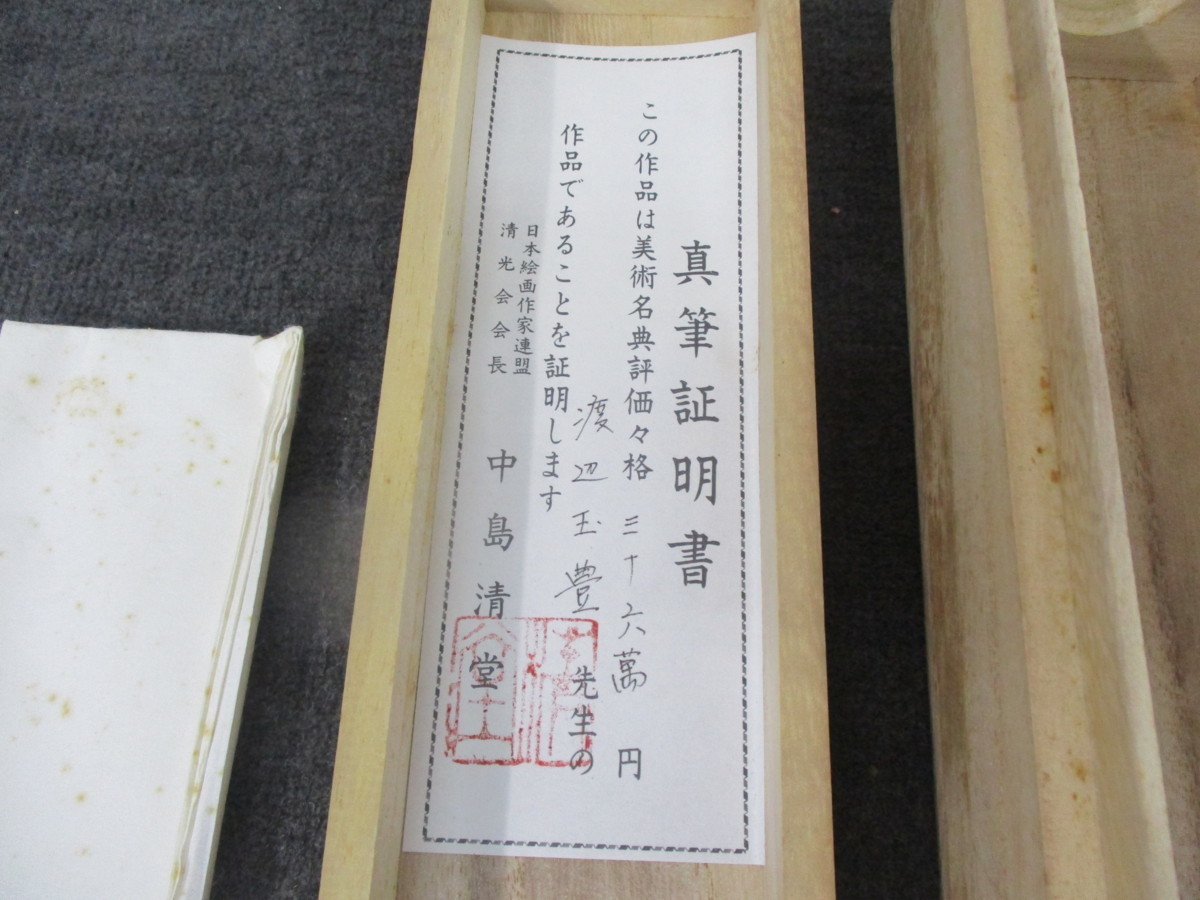 真筆証明書
この作品は美術名典評価々格 三十六萬 円
渡辺玉豊 先生の
作品であることを証明します
日本絵画作家連盟
清光会会長
中島清堂